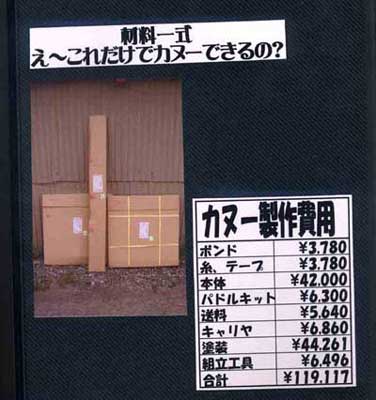 材料一式
え～これだけでカヌーできるの?
カヌー製作費用
ボンド ¥3,780
糸、テープ ¥3,780
本体 ¥42,000
パドルキット ¥6,300
送料 ¥5,640
キャリヤ ¥6,860
塗装 ¥44,261
組立工具 ¥6,496
合計 ¥119,117